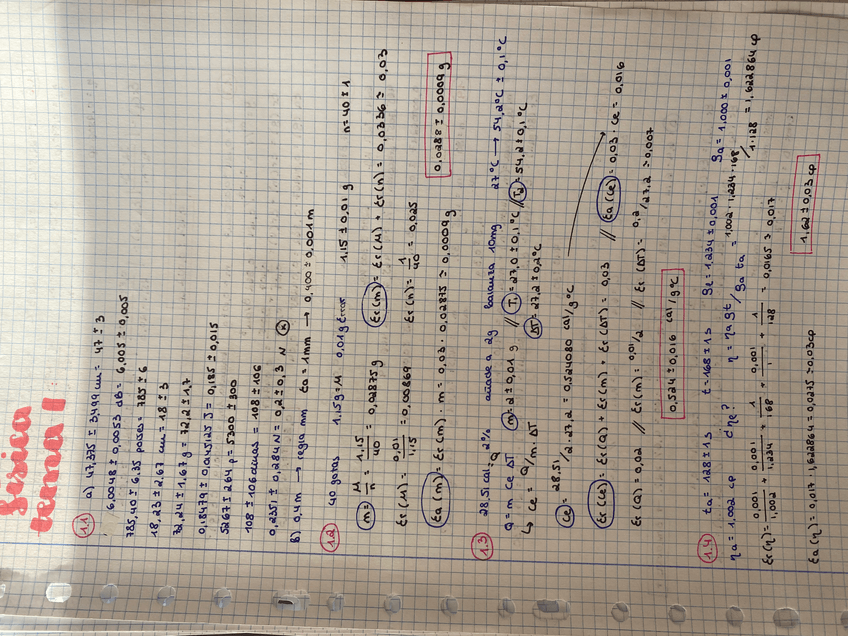 física
tema 1
1.1 a) 47,375 ± 3,499 cm = 47 ± 3
6,0048 ± 0,0053 dB = 6,005 ± 0,005
785,40 ± 6,35 passes = 785 ± 6
18,23 ± 2,67 cm = 18 ± 3
72,24 ± 1,67 g = 72,2 ± 1,7
0,18479 ± 0,0145125 S = 0,185 ± 0,015
5267 ± 264 p = 5300 ± 300
108 ± 106 dinas = 108 ± 106
0,2351 ± 0,284 N = 0,2 ± 0,3 N
b) 0,4 m → regla mm Ea = 1mm → 0,400 ± 0,001 m
1.2 40 gotas 1.15g = M 0,01g Error 1.15 ± 0,01 g n = 40 ± 1
m = M/n = 1,15/40 = 0,02875 g Er(m) = Er(M) + Er(n) = 0,0336 ≃ 0,03
Er(M) = 0,01/1,15 = 0,00869 Er(n) = 1/40 = 0,025
Ea(m) = Er(m) · m = 0,03 · 0,02875 ≃ 0,0009 g 0,0288 ± 0,0009 g
1.3 28,51 cal ± 2% añade a 2g balanza 10mg 27°C → 54,2°C ± 0,1°C
Q = m Ce ΔT m = 2 ± 0,01 g // T₁ = 27,0 ± 0,1°C // T₂ = 54,2 ± 0,1°C
↳ Ce = Q/m ΔT ΔT = 27,2 ± 0,2°C
Ce = 28,51/2·27,2 = 0,524080 cal/g°C
Er(Ce) = Er(Q) + Er(m) + Er(ΔT) = 0,03 // Ea(Ce) = 0,03 · Ce = 0,016
Er(Q) = 0,02 // Er(m) = 0,01/2 // Er(ΔT) = 0,2/27,2 ≃ 0,007
0,524 ± 0,016 cal/g°C
1.4 ta = 128 ± 1 s t = 168 ± 1 s ge = 1,234 ± 0,001 ga = 1,000 ± 0,001
ηa = 1,002 cp η = ηa gt / ga ta = 1,002 · 1,234 · 168 / 1·128 = 1,622864 cp
Er(η) = 0,001/1,002 + 0,001/1,234 + 1/168 + 0,001/1 + 1/128 = 0,0165 ≃ 0,017
Ea(η) = 0,017 · 1,622864 = 0,0275 ≃ 0,03cp 1,62 ± 0,03 cp